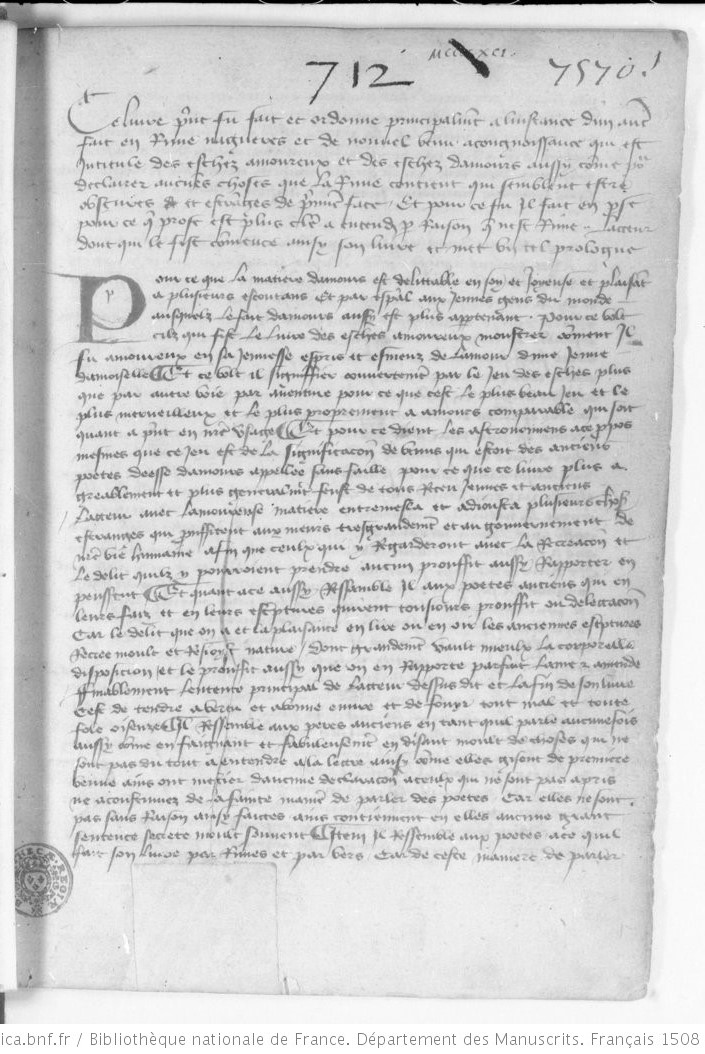 MCCCCXCI.
712
7570.
Ce livre pñt fu fait et ordonne principalmt a linstance dun autre
fait en Rime nagueres et de nouvel venu a congnoissance qui est
Intitule des eschez amoureux et des eschez damours aussy come por
declairer aucũes choses que la Rime contient qui semblent estre
obscures et estranges de p̃miere face. Et pour ce fu Il fait en p̃se
pour ce q̃ prose est plus clere a entendre par Raison q̃ nest Rime. Lacteur
dont qui le fist comence ainsy son livre et met un tel prologue
Pour ce que la matiere damours est delittable en soy et Joyeuse et plaisãt
a plusieurs escoutans Et par esp̃al aux Jennes gens du monde
ausquelz le fait damours aussy est plus appartenant. Pour ce volt
cilz qui fist le livre des esches amoureux moustrer coment Il
fu amoureux en sa Jennesse espris et esmeuz de lamour dune Jenne
damoiselle Et ce volt il signiffier couvertement par le Jeu des esches plus
que par autre voie par aventure pour ce que cest le plus beau Jeu et le
plus merveilleux et le plus proprement a amours comparable qui soit
quant a p̃nt en nr̃e usage Et pour ce dient les astronomiens a ce ppos
mesmes que ce Jeu est de la signifficacõn de venus qui estoit des anciens
poetes deesse damours appellee sans faille pour ce que ce livre plus a
greablement et plus generalmt feust de tous Receu Jennes et anciens
Lacteur avec lamoureuse matiere entremesla et adiousta plusieurs choses
estranges qui prouffitent aux meurs tresgrandemt et au gouvernement de
nr̃e vie humaine affin que ceulx qui y Regarderont avec la Recreacõn et
le delit quilz y pourroient prendre aucun prouffit aussy Rapporter en
peussent Et quant a ce aussy Ressemble Il aux poetes anciens qui en
leurs faiz et en leurs escriptures quirent tousiours prouffit ou delectacõn
Car le delit que on a et la plaisance en lire ou en oir les anciennes escriptures
Recree moult et Resioyst nature / dont grandemt vault mieulx la corporelle
disposicion / et le prouffit aussy que on en Rapporte parfait lame et amende
Finablement lentente principal de lacteur dessus dit et la fin de son livre
Cest de tendre a vertu et a bonne euvre et de fouyr tout mal et toute
fole oiseuze Il Ressemble aux peres anciens en tant quil parle aucunesfois
aussy cõme en faignant et fabuleusement en disant moult de choses qui ne
sont pas du tout a entendre a la lectre ainsy cõme elles gisent de premiere
venue ains ont mestier daucune declaracõn a ceulx qui ne sont pas apris
ne acoustumez de la fainte maniere de parler des poetes Car elles ne sont
pas sans Raison ainsy faictes ains contiennent en elles aucune grant
sentence secrete moult souvent Item Il Ressemble aux poetes a ce quil
fait son livre par Rimes et par vers Car de ceste maniere de parler
ica.bnf.fr / Bibliothèque nationale de France. Département des Manuscrits. Français 1508